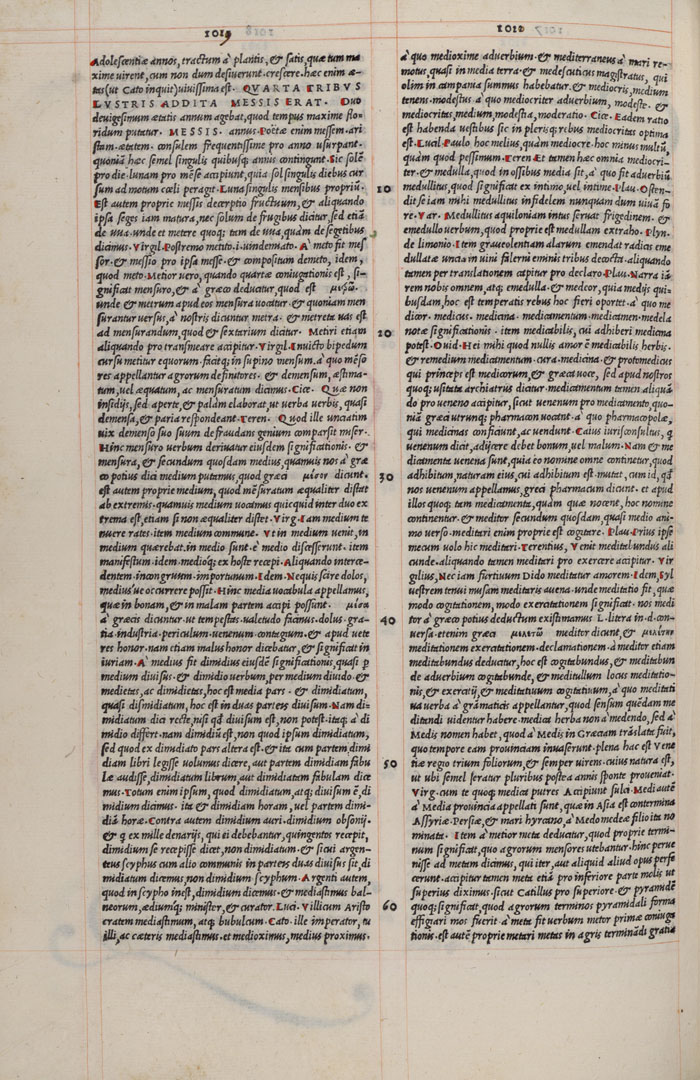 1019
Adolescentiæ annos, tractum à plantis, & satis, quæ tum ma
xime uirent, cum non dum desiuerunt crescere. hæc enim æ-
tas (ut Cato inquit) uiuissima est. QVARTA TRIBVS
LVSTRIS ADDITA MESSIS ERAT. Duo
deuigesimum ætatis annum agebat, quod tempus maxime flo-
ridum putatur. MESSIS. annus. Poëtæ enim messem. ari
stam. æstatem. consulem frequentissime pro anno usurpant.
quoniã hæc semel singulis quibusq; annis contingunt. Sic solẽ
pro die. lunam pro mẽse accipiunt, quia sol singulis diebus cur
sum ad motum cœli peragit. Luna singulis mensibus propriũ.
Est autem proprie messis decerptio fructuum, & aliquando
ipsa seges iam matura, nec solum de frugibus dicitur, sed etiã
de uua. unde et metere quoq; tam de uua, quàm de segetibus
dicimus. Virgil. Postremo metito. i. uindemiato. A meto fit mes
sor. & messio pro ipsa messe. & compositum demeto, idem,
quod meto. Metior uero, quando quartæ coniugationis est, si-
gnificat mensuro, & à græco deducitur, quod est
unde & metrum apud eos mensura uocatur. & quoniam men
surantur uersus, à nostris dicuntur metra. & metreta uas est
ad mensurandum, quod & sextarium dicitur. Metiri etiam
aliquando pro transmeare accipitur. Virgil. Inuicto bipedum
cursu metitur equorum. facitq; in supino mensum. à quo mẽso
res appellantur agrorum definitores. & demensum, æstima-
tum, uel æquatum, ac mensuratum dicimus. Cice. Quæ non
insidijs, sed aperte, & palàm elaborat, ut uerba uerbis, quasi
demensa, & paria respondeant. Teren. Quod ille unciatim
uix demenso suo suum defraudans genium comparsit miser.
Hinc mensuro uerbum deriuatur eiusdem significationis. &
mensura, & secundum quosdam medius, quamuis nos à græ
co potius dici medium putemus, quod græci μέσον dicunt.
est autem proprie medium, quod mẽsuratum æqualiter distat
ab extremis. quamuis medium uocamus quicquid inter duo ex
trema est, etiam si non æqualiter distet. Virg. Iam medium te
nuere rates. item medium commune. Vt in medium uenit, in
medium quærebat. in medio sunt. è medio discesserunt. item
manifestum. idem. medioq; ex hoste recepi. Aliquando interce-
dentem. incongruum. importunum. Idem. Nequis scire dolos,
medius ue occurrere possit. Hinc media uocabula appellamus,
quæ in bonam, & in malam partem accipi possunt. μέσα
à græcis dicuntur. ut tempestas. ualetudo. facinus. dolus. gra-
tia. industria. periculum. uenenum. contagium. & apud uete
res honor. nam etiam malus honor dicebatur, & significat in
iuriam. A medius fit dimidius eiusdẽ significationis, quasi p
medium diuisus. & dimidio uerbum, per medium diuido. &
medietas, ac dimidietas, hoc est media pars. & dimidiatum,
quasi dismidiatum, hoc est in duas partes diuisum. Nam di-
midiatum dici recte, nisi qđ diuisum est, non potest. itaq; à di
midio differt. nam dimidiũ est, non quod ipsum dimidiatum,
sed quod ex dimidiato pars altera est. & ita cum partem dimi
diam libri legisse uolumus dicere, aut partem dimidiam fabu
læ audisse, dimidiatum librum, aut dimidiatam fabulam dice
mus. Totum enim ipsum, quod dimidiatum, atq; diuisum ẽ, di
midium dicimus. ita & dimidiam horam, uel partem dimi-
diã horæ. Contra autem dimidium auri. dimidium obsonij.
& q ex mille denarijs, qui ei debebantur, quingentos recepit,
dimidium se recepisse dicet, non dimidiatum. & sicui argen-
teus scyphus cum alio communis in partes duas diuisus sit, di
midiatum dicemus, non dimidium scyphum. Argenti autem,
quod in scypho inest, dimidium dicemus. & mediastinus bal-
neorum, ædiumq; minister, & curator. Luci. Villicum Aristo
cratem mediastinum, atq; bubulcum. Cato. ille imperator, tu
illi, ac cæteris mediastinus. et medioximus, medius proximus.
10
20
30
40
50
60
à quo medioxime aduerbium. & mediterraneus à mari re-
motus, quasi in media terra. & medescuticus magistratus, qui
olim in campania summus habebatur. & mediocris, medium
tenens. modestus. à quo mediocriter aduerbium, modeste. &
mediocritas, medium, modestia, moderatio. Cice. Eadem ratio
est habenda uestibus sic in plerisq; rebus mediocritas optima
est. Lucil. Paulo hoc melius, quàm mediocre. hoc minus multũ,
quàm quod pessimum. Teren. Et tamen hæc omnia mediocri-
ter. & medulla, quod in ossibus media sit, à quo fit aduerbiũ
medullitus, quod significat ex intimo, uel intime. Plau. Osten-
dit se iam mihi medullitus infidelem nunquam dum uiuã fo
re. Var. Medullitus aquiloniam intus seruat frigedinem. &
emedullo uerbum, quod proprie est medullam extraho. Plyn.
de limonio. Item graueolentiam alarum emendat radicis eme
dullatæ uncia in uini falerni eminis tribus decocta. aliquando
tamen per translationem capitur pro declaro. Plau. Narra iã
rem nobis omnem, atq; emedulla. & medeor, quia medijs qui-
busdam, hoc est temperatis rebus hoc fieri oportet. à quo me
dicor. medicus. medicina. medicamentum. medicamen. medela
notæ significationis. item medicabilis, cui adhiberi medicina
potest. Ouid. Hei mihi quod nullis amor ẽ medicabilis herbis.
& remedium medicamentum. cura. medicina. & protomedicus
qui princeps est medicorum, & græca uoce, sed apud nostros
quoq; usitata archiatrus dicitur. medicamentum tamen aliquã
do pro ueneno accipitur, sicut uenenum pro medicamento, quo-
niã græci utrunq; pharmacon uocant. à quo pharmacopolæ,
qui medicinas conficiunt, ac uendunt. Caius iurisconsultus, q
uenenum dicit, adijcere debet bonum, uel malum. Nam & me
dicamenta uenena sunt, quia eo nomine omne continetur, quod
adhibitum, naturam eius, cui adhibitum est. mutat, cum id, qđ
nos uenenum appellamus, græci pharmacum dicunt. et apud
illos quoq; tam medicamenta, quàm quæ nocent, hoc nomine
continentur. & meditor secundum quosdam, quasi medio ani-
mo uerso. meditari enim proprie est cogitare. Plau. Prius ipse
mecum uolo hic meditari. Terentius, Venit meditatus alicunde. aliquando tamen meditari pro exercere accipitur. Vir
gilius, Nec iam furtiuum Dido meditatur amorem. Idem, Syl
uestrem tenui musam meditaris auena. unde meditatio fit, quæ
modo cogitationem, modo exercitationem significat. nos medi
tor à græco potius deductum existimamus L. litera in. d. con-
uersa. etenim græci μελετῶ meditor dicunt, &
meditationem. exercitationem. declamationem. à meditor etiam
meditabundus deducitur, hoc est cogitabundus, & meditabun
de aduerbium cogitabunde, & meditullum locus meditatio-
nis, & exercitij, & meditatiuum cogitatiuum, à quo meditati
ua uerba à grãmaticis appellantur, quod sensum quẽdam me
ditandi uidentur habere. medica herba non à medendo, sed à
Medis nomen habet, quod à Medis in Græciam trãslate fuit,
quo tempore eam prouinciam inuaserunt. plena hæc est Vene
tiæ regio trium foliorum, & semper uirens. cuius natura est,
ut ubi semel seratur pluribus postea annis sponte proueniat.
Virg. cum te quoq; medica putres Accipiunt sulci. Medi autẽ
à Media prouincia appellati sunt, quæ in Asia est contermina
Assyriæ. Persiæ, & mari hyrcano, à Medo medeæ filio ita no
minata. Item à metior meta deducitur, quod proprie termi-
num significat, quo agrorum mensores utebantur. hinc perue
nisse ad metam dicimus, qui iter, aut aliquid aliud opus perfe
cerunt. accipitur tamen meta etiã pro inferiore parte molis ut
superius diximus. sicut Catillus pro superiore. & pyramidẽ
quoq; significat, quod agrorum terminos pyramidali forma
effigiari mos fuerit. à meta fit uerbum metor primæ coniuga
tionis. est autẽ proprie metari metas in agris terminãdi gratia